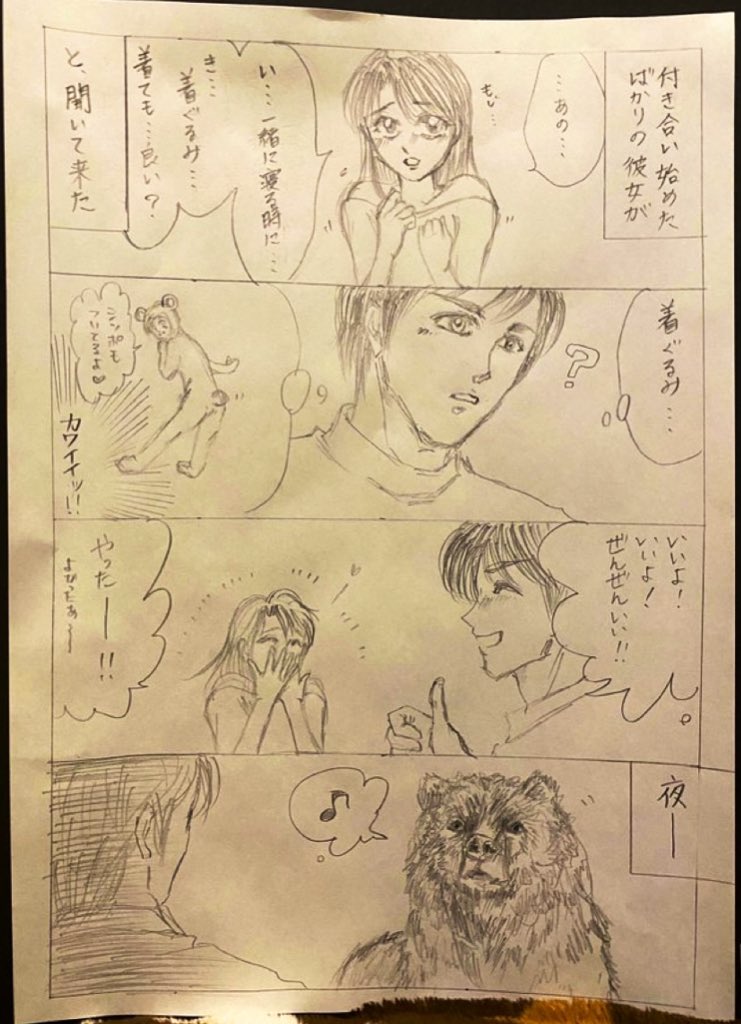 付き合い始めた
ばかりの彼女が
…あの…
もじ…
い…一緒に寝る時に…
き…
着ぐるみ…
着ても…良い?
と、聞いて来た
着ぐるみ…
?
シッポも
ついてるよ♡
カワイイッ!!
いいよ!
いいよ!
ぜんぜんいい!!
やったー!!
よかったぁ〜
夜ー
♪